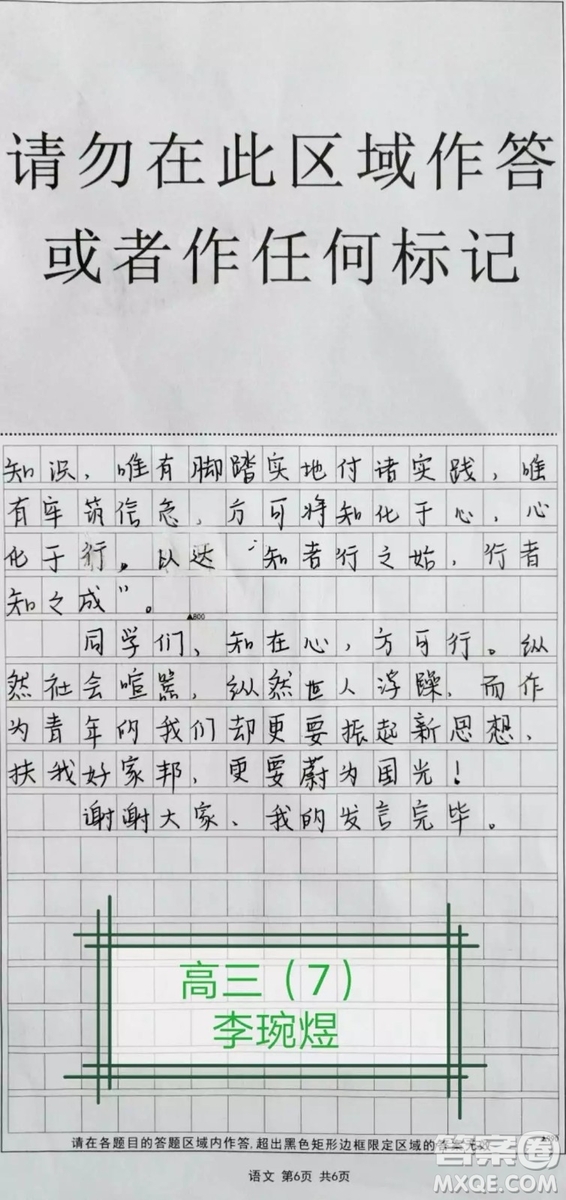 请勿在此区域作答
或者作任何标记
知识，唯有脚踏实地付诸实践，唯
有牢筑信念，方可将知化于心，心
化于行，以达“知者行之始，行者
知之成”。
▲800
同学们，知在心，方可行。纵
然社会喧嚣，纵然世人浮躁，而作
为青年的我们却更要振起新思想，
扶我好家邦，更要蔚为国光！
谢谢大家、我的发言完毕。
高三（7）
李琬煜
请在各题目的答题区域内作答，超出黑色矩形边框限定区域的答案无效
语文 第6页 共6页
答案圈
MXQE.COM